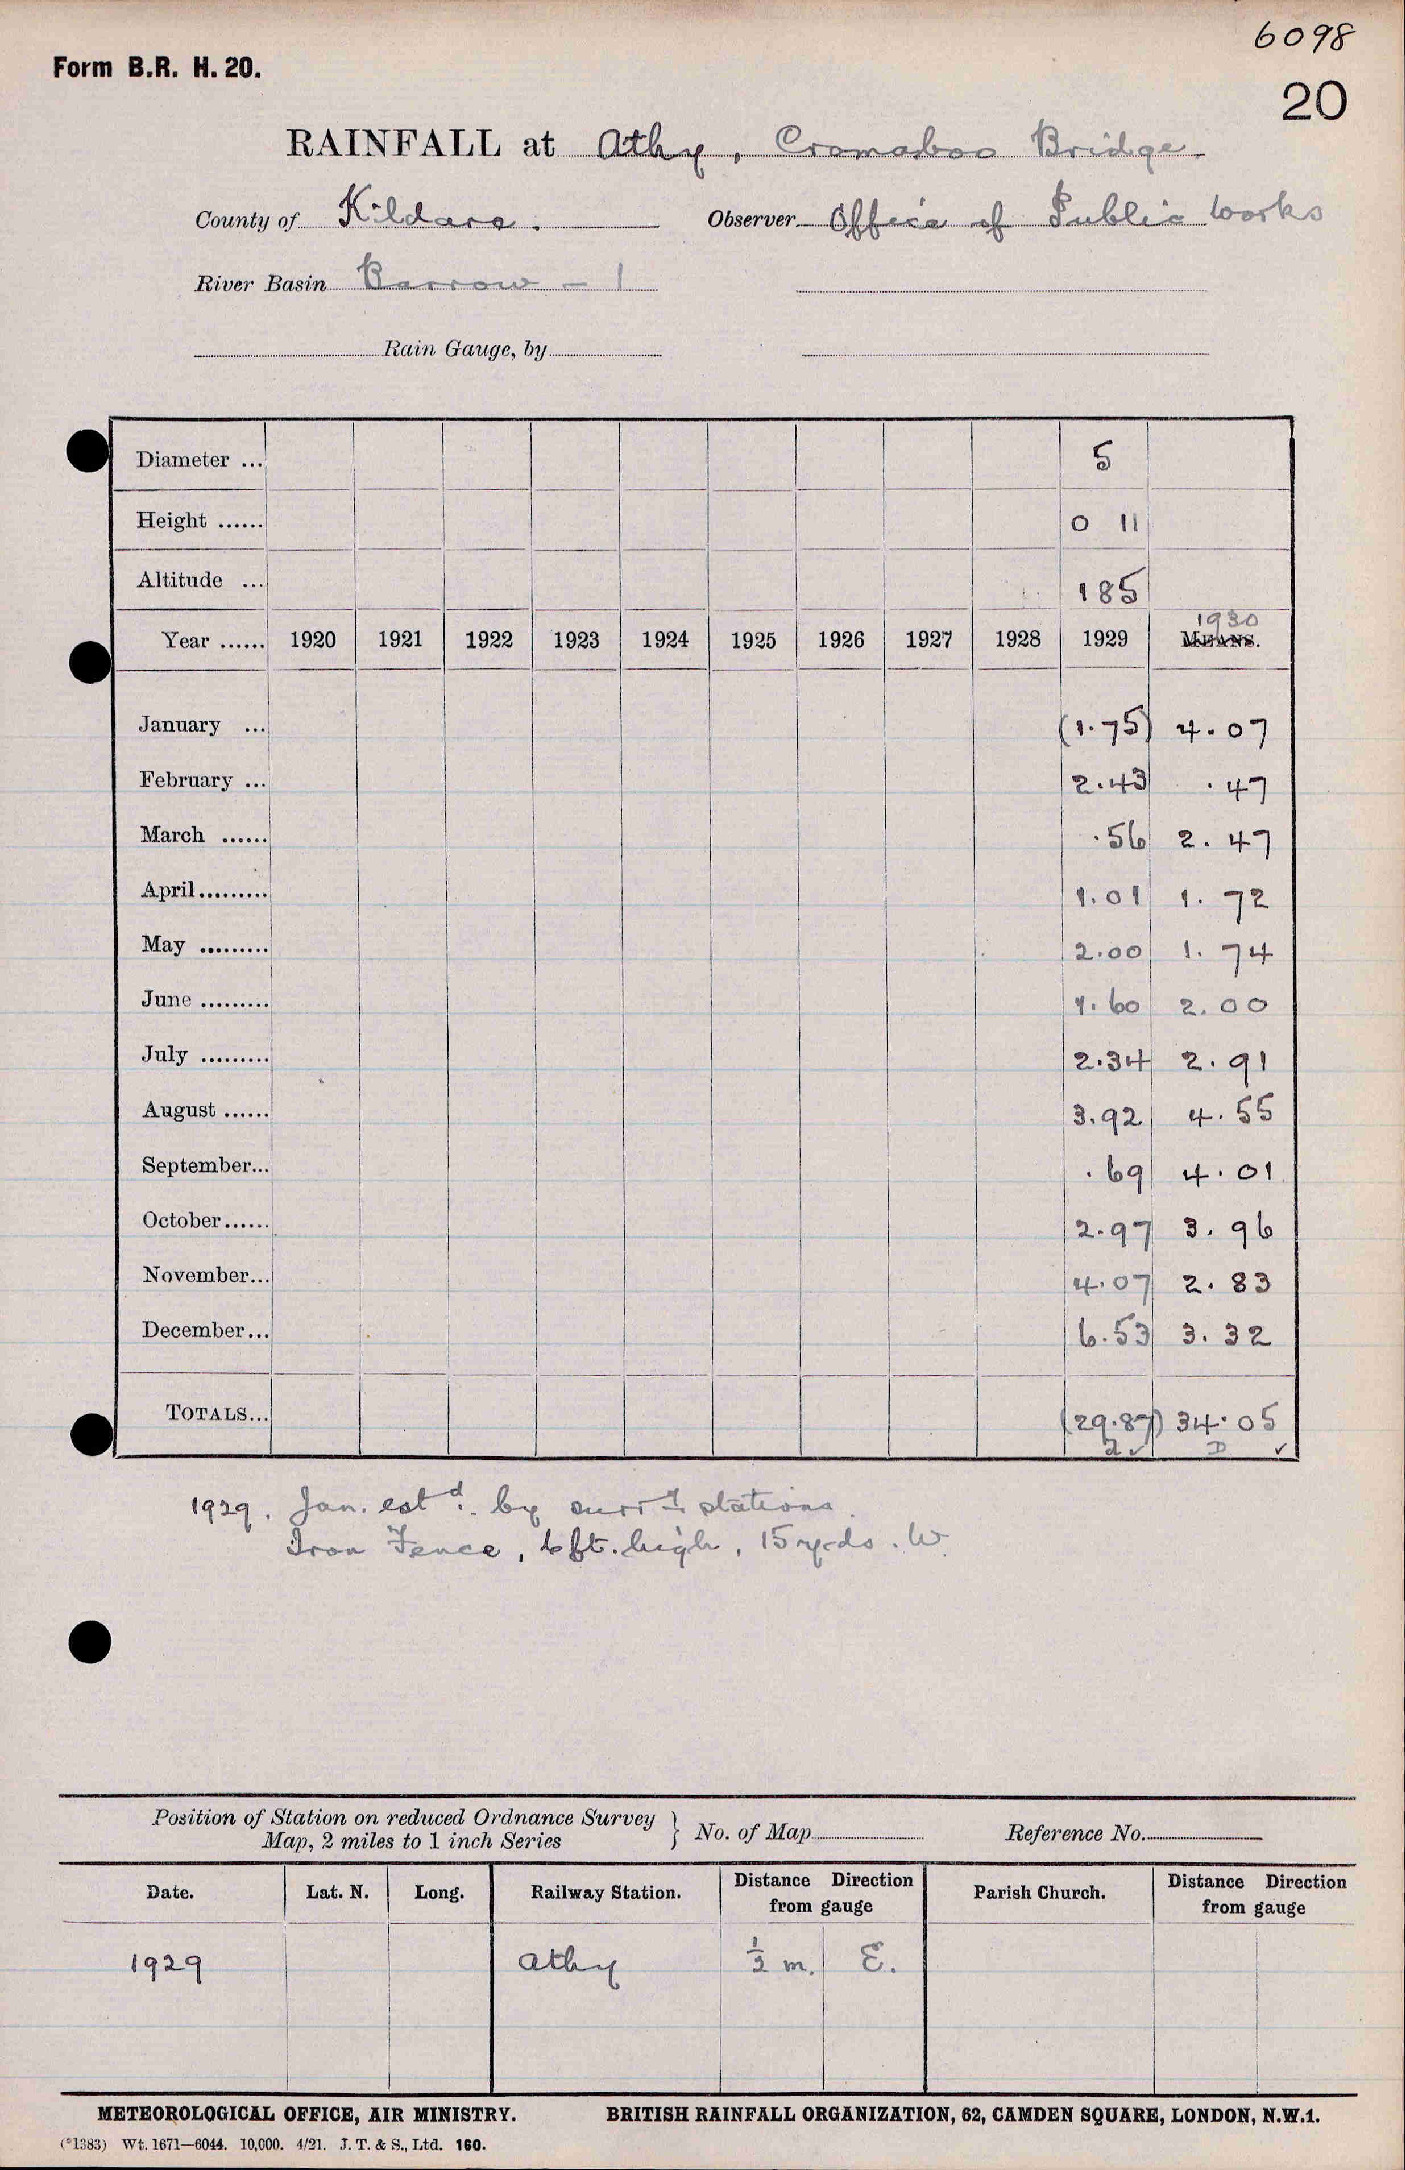 6098
Form B.R. H. 20.
20
RAINFALL at Athy, Cromaboo Bridge
County of Kildare. Observer Office of Public Works
River Basin Barrow - 1
Rain Gauge, by
Diameter ... 5
Height ...... 0 11
Altitude ... 185
1930
Year ...... 1920 1921 1922 1923 1924 1925 1926 1927 1928 1929 MEANS.
January ... (1.75) 4.07
February ... 2.43 .47
March ...... .56 2.47
April......... 1.01 1.72
May ......... 2.00 1.74
June ......... 1.60 2.00
July ......... 2.34 2.91
August ...... 3.92 4.55
September... .69 4.01
October...... 2.97 3.96
November... 4.07 2.83
December... 6.53 3.32
TOTALS... (29.87) 34.05
2 ✓ D ✓
1929. Jan. estd. by surrg. stations.
Iron Fence, 6ft. high, 15 yds. W.
Position of Station on reduced Ordnance Survey
Map, 2 miles to 1 inch Series } No. of Map Reference No.
Date. Lat. N. Long. Railway Station. Distance Direction from gauge Parish Church. Distance Direction from gauge
1929 Athy 1/2 m. E.
METEOROLOGICAL OFFICE, AIR MINISTRY. BRITISH RAINFALL ORGANIZATION, 62, CAMDEN SQUARE, LONDON, N.W.1.
(*1383) Wt. 1671—6044. 10,000. 4/21. J. T. & S., Ltd. 160.